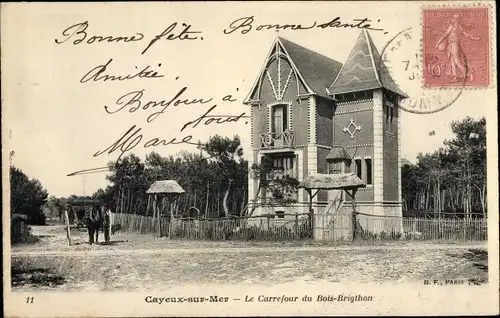 Bonne fête. Bonne santé.
Amitie.
Bonjour à
tous
Marie
10
11
Cayeux-sur-Mer — Le Carrefour du Bois-Brigthon
B. F., PARIS